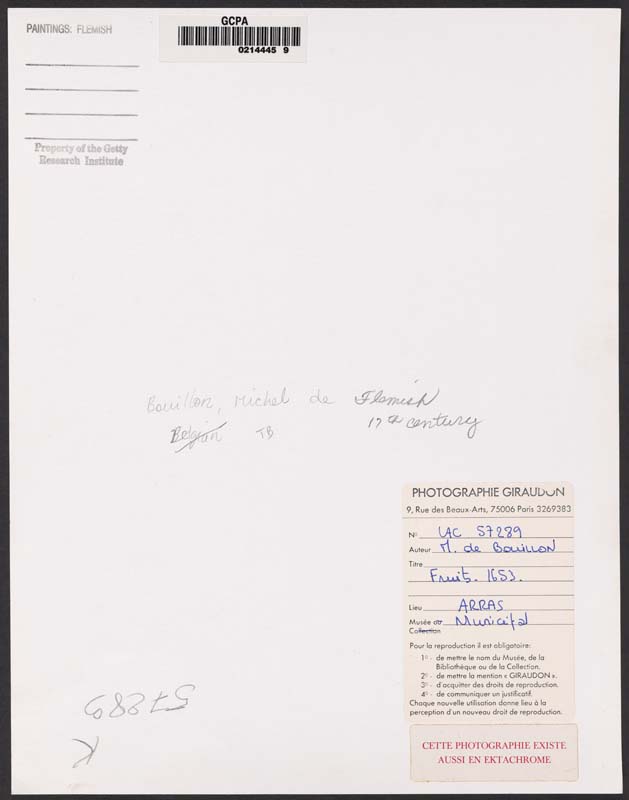 PAINTINGS: FLEMISH
GCPA
0214445 9
Property of the Getty
Research Institute
Bouillon, Michel de Flemish
Belgian TB 17th century
PHOTOGRAPHIE GIRAUDON
9, Rue des Beaux-Arts, 75006 Paris 3269383
N° LAC 57289
Auteur M. de BOUILLON
Titre
Fruits. 1653.
Lieu ARRAS
Musée ou Municipal
Collection
Pour la reproduction il est obligatoire:
1° - de mettre le nom du Musée, de la
Bibliothèque ou de la Collection.
2° - de mettre la mention « GIRAUDON ».
3° - d'acquitter des droits de reproduction.
4° - de communiquer un justificatif.
Chaque nouvelle utilisation donne lieu à la
perception d'un nouveau droit de reproduction.
57289
K
CETTE PHOTOGRAPHIE EXISTE
AUSSI EN EKTACHROME